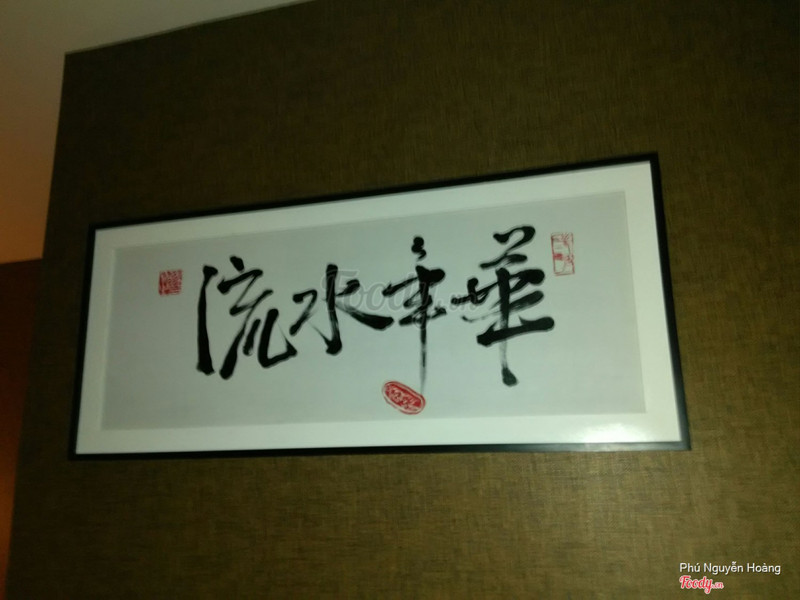 流水年華
Foody.vn
Phú Nguyễn Hoàng
Foody.vn